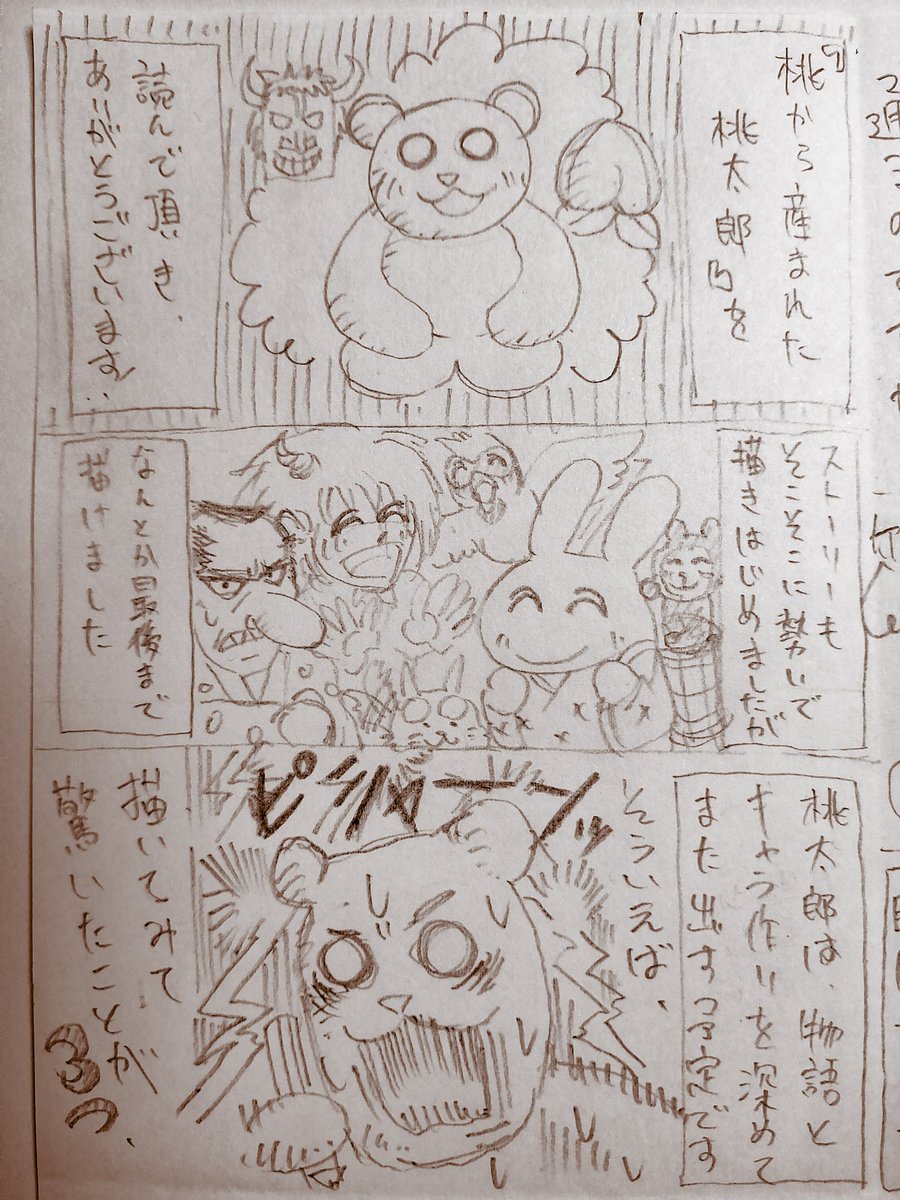 「桃から産まれた
桃太郎」を
読んで頂き、
ありがとうございます‥
ストーリーも
そこそこに勢いで
描きはじめましたが
なんとか最後まで
描けました
桃太郎は、物語と
キャラ作りを深めて
また出す予定です
そういえば、
ピシャーーンッ
描いてみて
驚いたことが、
3つ